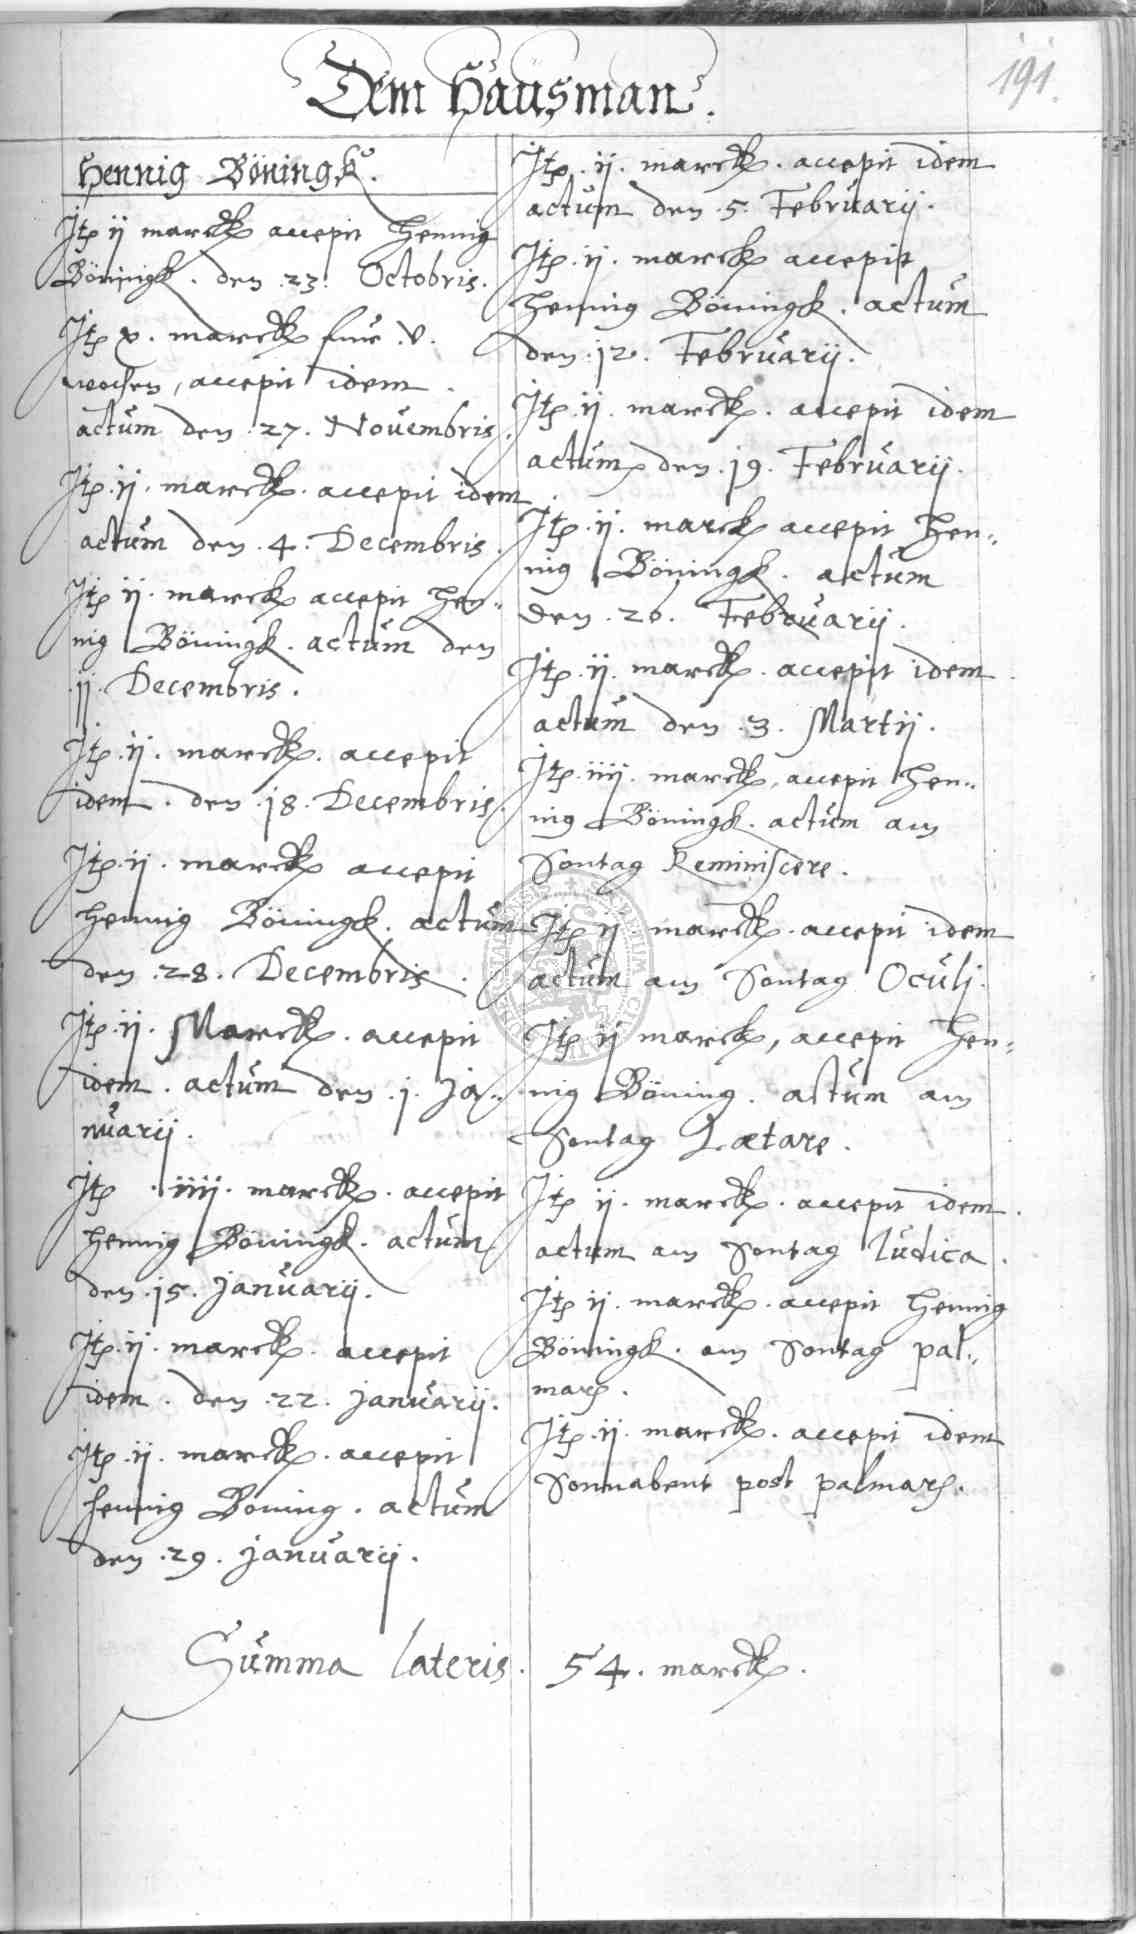 Dem Haüsman.
191.
Hennig Böningk.
Itp ij marck accepit Hennig
Böningk. den .23. Octobris.
Itp x. marck fur .v.
wochen, accepit idem.
actum den .27. Nouembris.
Itp .ij. marck. accepit idem
actum den .4. Decembris.
Itp ij. marck accepit Hen„
nig Böningk. actum den
.jj. Decembris.
Itp .ij. marck. accepit
idem. den .j8. Decembris.
Itp .ij. marck accepit
Hennig Böningk. actum
den .28. Decembris.
Itp .ij. Marck. accepit
idem. actum den .j. Ja„
nuarij.
Itp .iiij. marck. accepit
Hennig Böningk. actum
den .j5. Januarij.
Itp .ij. marck. accepit
idem. den .22. Januarij.
Itp .ij. marck. accepit
Hennig Boning. actum
den .29. Januarij.
Itp .ij. marck. accepit idem
actum den .5. Februarij.
Itp .ij. marck accepit
Hennig Böningk. actum
den .j2. Februarij.
Itp .ij. marck. accepit idem
actum den .j9. Februarij.
Itp .ij. marck accepit Hen„
nig Böningk. actum
den .26. Februarij.
Itp .ij. marck. accepit idem.
actum den .3. Martij.
Itp .iiij. marck, accepit Hen„
nig Böningk. actum am
Sontag Reminiscere.
Itp ij marck. accepit idem
actum am Sontag Oculj.
Itp ij marck, accepit Hen„
nig Böning. actum am
Sontag Lætare.
Itp ij. marck. accepit idem.
actum am Sontag Iudica.
Itp ij. marck. accepit Hennig
Böningk. am Sontag pal„
marp.
Itp .ij. marck. accepit idem
Sonnabent post palmarp.
Summa lateris. 54. marck.